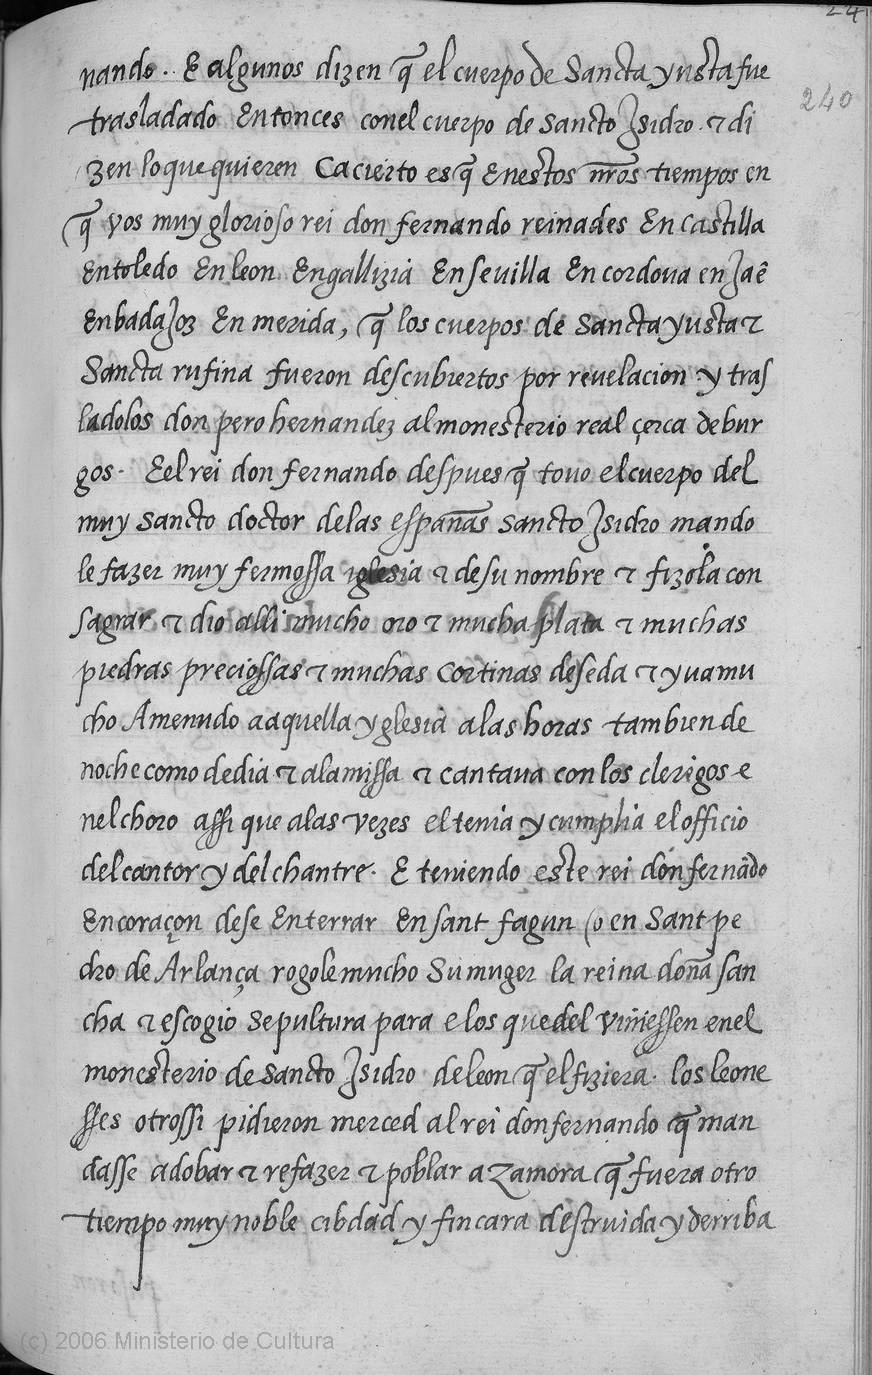 241
240
nando. E algunos dizen q̃ el cuerpo de Sancta yusta fue
trasladado Entonces conel cuerpo de sancto Jsidro. ⁊ di
zen lo que quieren Ca cierto es q̃ Enestos nr̃os tiempos en
q̃ vos muy glorioso rei don fernando reinades En castilla
Entoledo En leon Engallizia En sevilla En cordova en Jaẽ
En badaJoz En merida, q̃ los cuerpos de Sancta yusta ⁊
Sancta rufina fueron descubiertos por revelacion y tras
ladolos don pero hernandez al monesterio real çerca de bur
gos. E el rei don fernando despues q̃ tovo el cuerpo del
muy sancto doctor delas españas sancto Jsidro mando
le fazer muy fermossa iglesia ⁊ de su nombre ⁊ fizola con
sagrar ⁊ dio alli mucho oro ⁊ mucha plata ⁊ muchas
piedras preciossas ⁊ muchas cortinas de seda ⁊ yua mu
cho Amenudo a aquella yglesia a las horas tambien de
noche como de dia ⁊ ala missa ⁊ cantaua con los clerigos e
nel choro assi que alas vezes el tenia y cumplia el officio
del cantor y del chantre. E teniendo este rei don fernãdo
En coraçon dese Enterrar En sant fagun (o en Sant pe
dro de Arlança rogole mucho Su muger la reina doña san
cha ⁊ escogio sepultura para e los que del viniessen enel
monesterio de sancto Jsidro de leon q̃ el fiziera. los leone
sses otrossi pidieron merced al rei don fernando q̃ man
dasse adobar ⁊ refazer ⁊ poblar a Zamora q̃ fuera otro
tiempo muy noble cibdad y fincara destruida y derriba
(c) 2006 Ministerio de Cultura